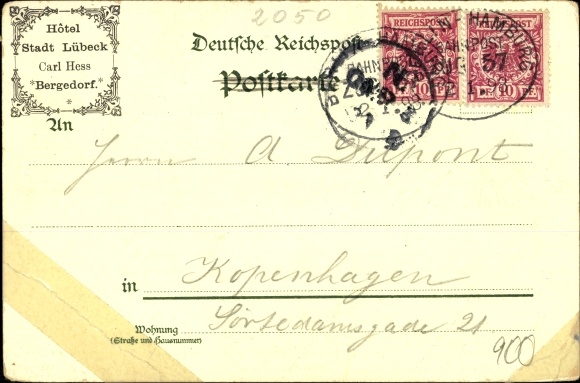 2050
Hôtel
Stadt Lübeck
Carl Hess
*Bergedorf.*
*
Deutsche Reichspost
Postkarte
REICHSPOST
10
POST
10
HAMBURG
BAHNPOST
37
An
Herrn A. Dupont
in Kopenhagen
Wohnung
(Straße und Hausnummer)
Sortedamsgade 21
900